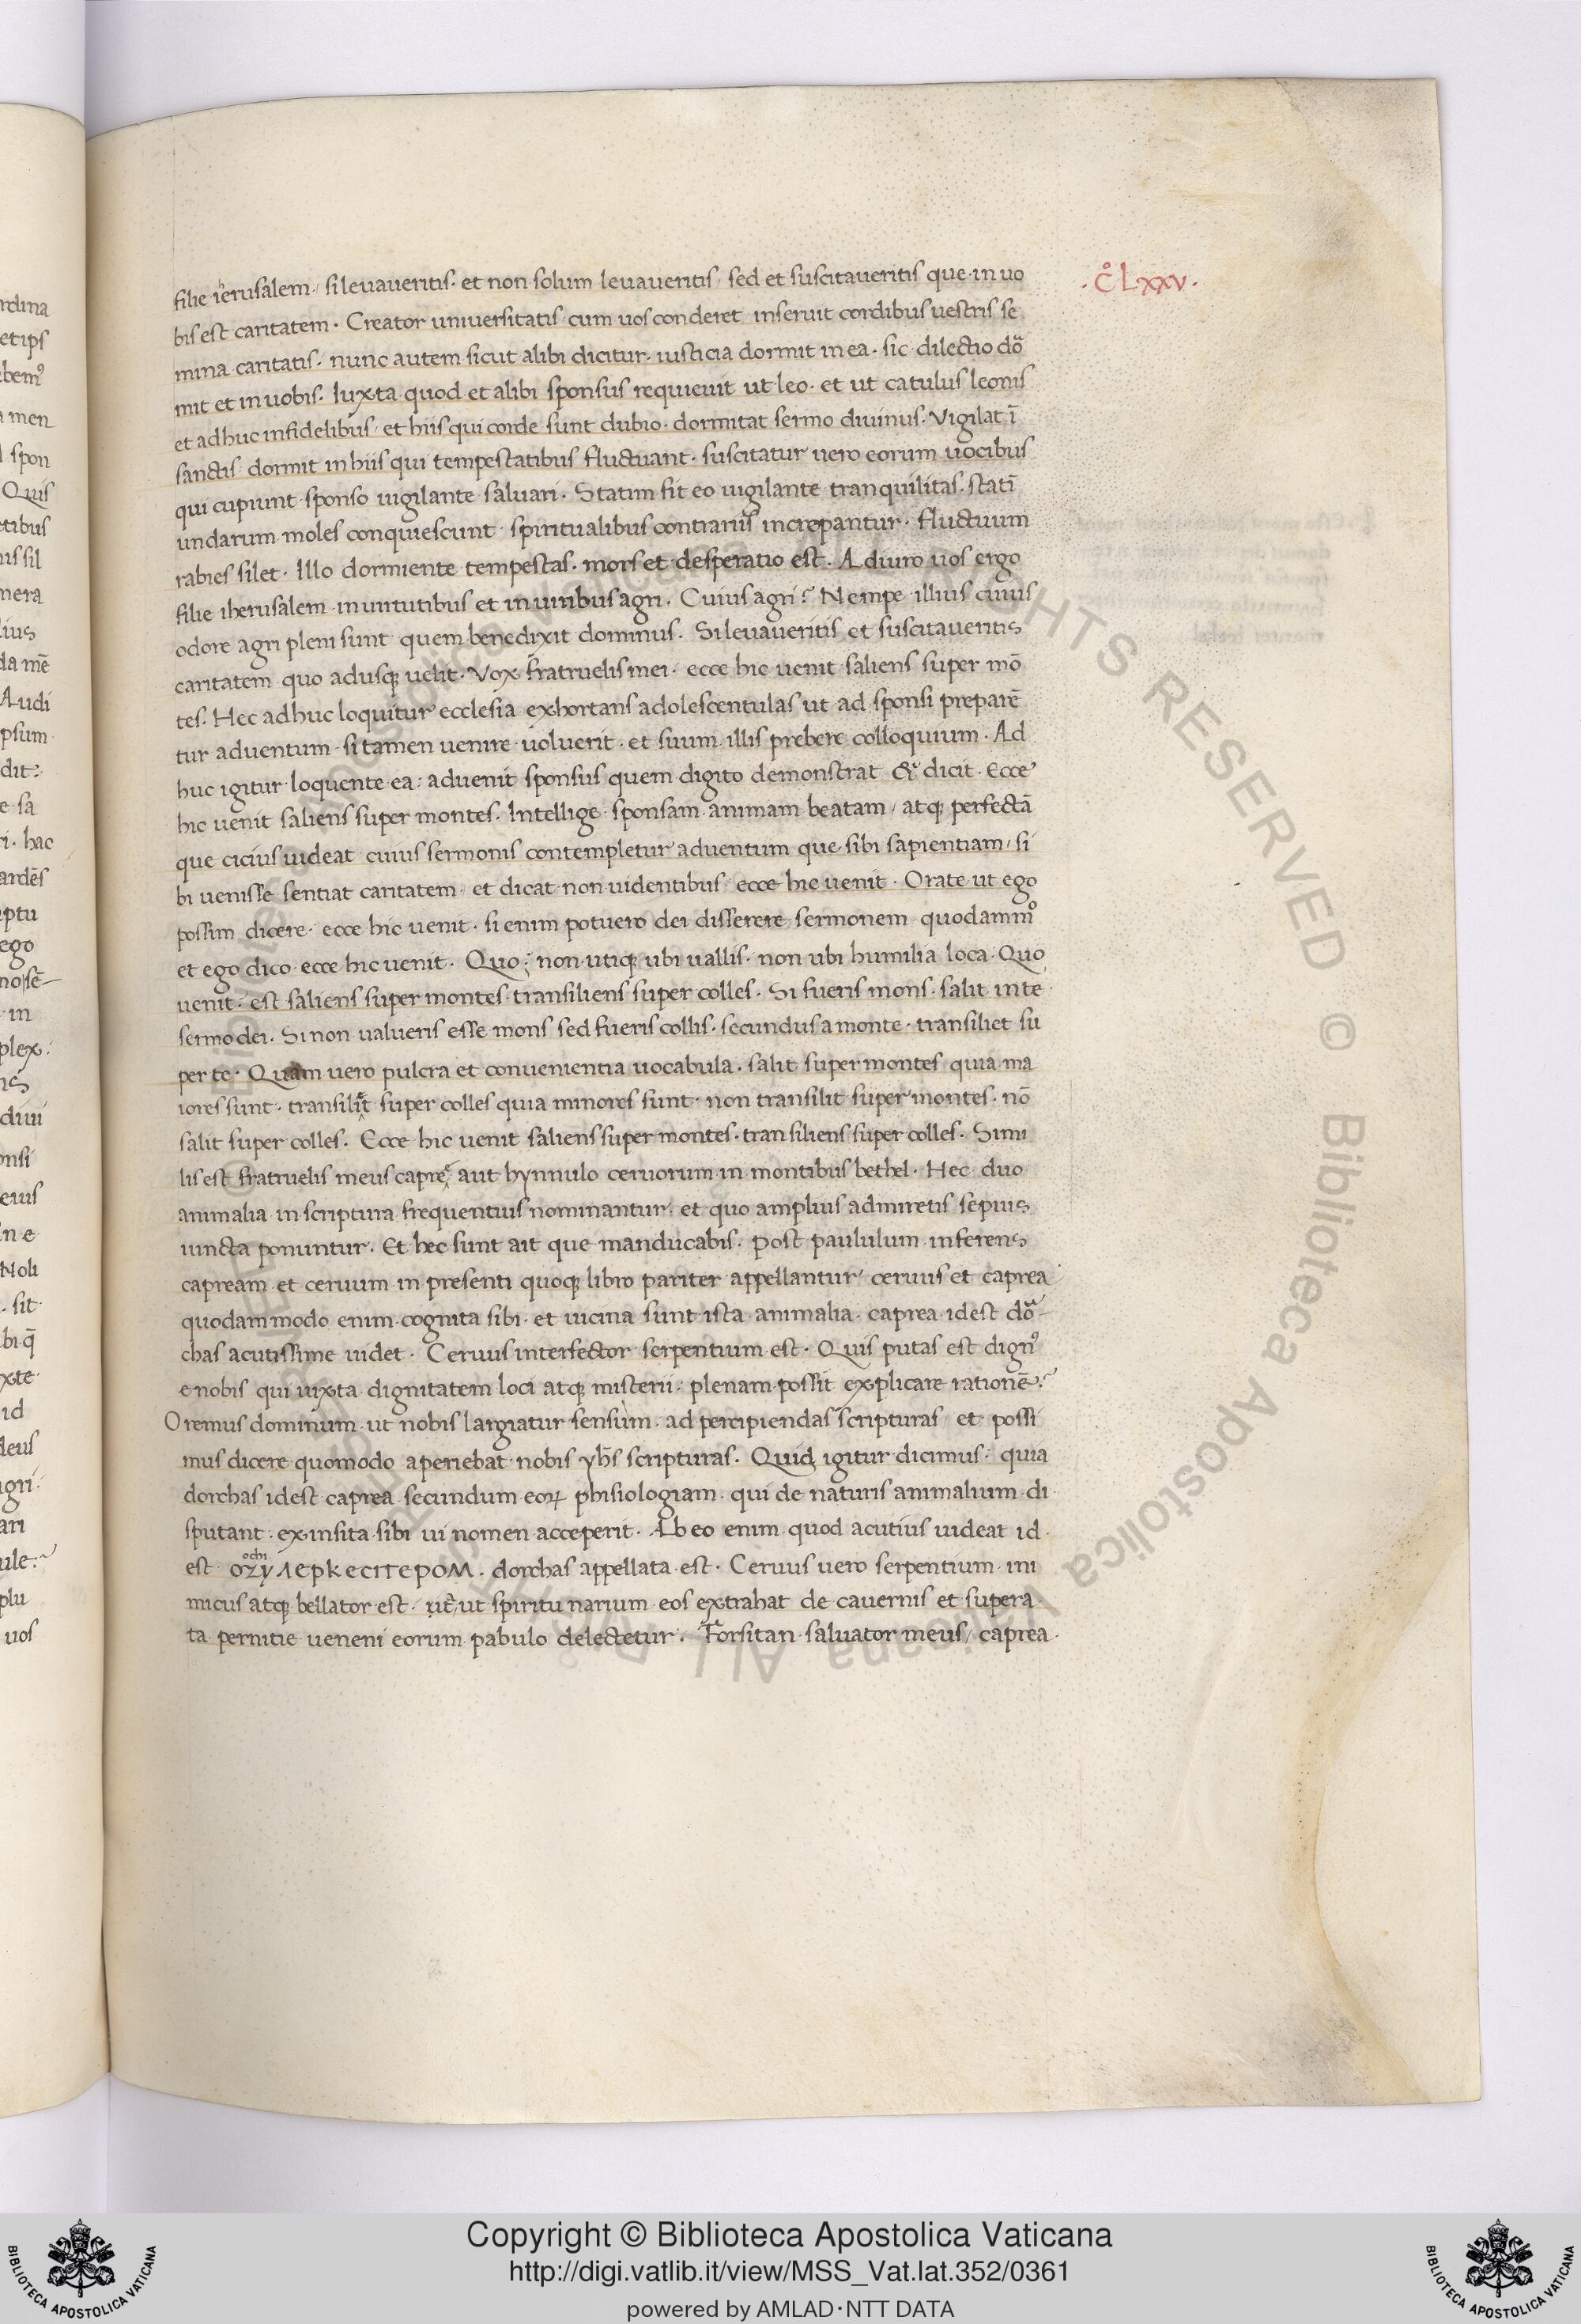 .CLxxv.
filie ierusalem / si levaveritis · et non solum levaveritis / sed et suscitaveritis que in vo
bis est caritatem · Creator universitatis cum uos conderet inseruit cordibus uestris se
mina caritatis · nunc autem sicut alibi dicitur · iusticia dormit in ea · sic dilectio dor
mit et in uobis · Iuxta quod et alibi sponsus requievit ut leo · et ut catulus leonis
et adhuc infidelibus · et hiis qui corde sunt dubio · dormitat sermo divinus · Vigilat ī
sanctis · dormit in hiis qui tempestatibus fluctuant · suscitatur uero eorum uocibus
qui cupiunt sponso uigilante saluari · Statim fit eo uigilante tranquilitas · statī
undarum moles conquiescunt · spiritualibus contrariis increpantur · fluctuum
rabies silet · Illo dormiente tempestas · mors et desperatio est · Adiuro uos ergo
filie iherusalem in uirtutibus et in uiribus agri · Cuius agri? Nempe illius cuius
odore agri pleni sunt quem benedixit dominus · Si levaveritis et suscitaveritis
caritatem quo adusq; uelit · Vox fratruelis mei · ecce hic uenit saliens super mō
tes · Hec adhuc loquitur ecclesia exhortans adolescentulas ut ad sponsi preparē
tur aduentum · si tamen uenire uoluerit · et suum illis prebere colloquium · Ad
huc igitur loquente ea · aduenit sponsus quem digito demonstrat & dicit · Ecce
hic uenit saliens super montes · Intellige sponsam animam beatam / atq; perfectā
que cicius uideat cuius sermonis contempletur aduentum que sibi sapientiam / si
bi uenisse sentiat caritatem · et dicat non uidentibus · ecce hic uenit · Orate ut ego
possim dicere · ecce hic uenit · si enim potuero dei disserere sermonem quodammº
et ego dico ecce hic uenit · Quo? non utiq; ubi uallis · non ubi humilia loca · Quo
uenit · est saliens super montes transiliens super colles · Si fueris mons · salit in te
sermo dei · Si non ualueris esse mons sed fueris collis · secundus a monte · transiliet su
per te · Quam uero pulcra et convenientia uocabula · salit super montes quia ma
iores sunt · transiliit super colles quia minores sunt · non transilit super montes · nō
salit super colles · Ecce hic uenit saliens super montes · transiliens super colles · Simi
lis est fratruelis meus capree aut hynnulo ceruorum in montibus bethel · Hec duo
animalia in scriptura frequentius nominantur · et quo amplius admiretis sepius
iuncta ponuntur · Et hec sunt ait que manducabis · Post paululum inferens
capream et ceruum in presenti quoq; libro pariter appellantur / ceruus et caprea
quodammodo enim cognita sibi · et uicina sunt ista animalia · caprea id est dor
chas acutissime uidet · Ceruus interfector serpentium est · Quis putas est dignꝰ
e nobis qui iuxta dignitatem loci atq; misterii · plenam possit explicare rationē?
Oremus dominum · ut nobis largiatur sensum · ad percipiendas scripturas / et possi
mus dicere quomodo aperiebat nobis yhs̄ scripturas · Quid igitur dicimus · quia
dorchas id est caprea secundum eoꝝ phisiologiam · qui de naturis animalium di
sputant · ex insita sibi ui nomen acceperit · Ab eo enim quod acutius uideat id
est οζγ λερκεcιτερομ · dorchas appellata est · Ceruus uero serpentium ini
micus atq; bellator est · ut spiritu narium eos extrahat de cauernis et supera
ta pernitie ueneni eorum pabulo delectetur · Forsitan saluator meus / caprea
Copyright © Biblioteca Apostolica Vaticana
http://digi.vatlib.it/view/MSS_Vat.lat.352/0361
powered by AMLAD·NTT DATA
BIBLIOTECA APOSTOLICA VATICANA
BIBLIOTECA APOSTOLICA VATICANA